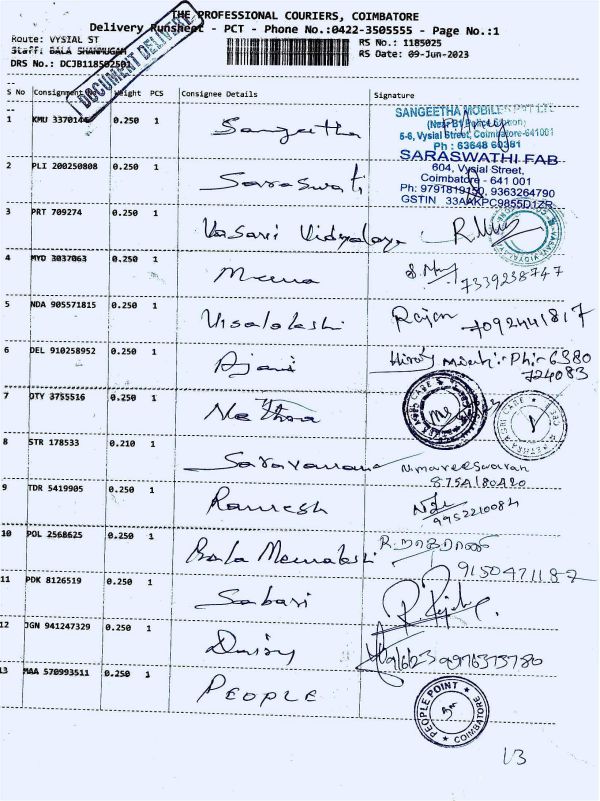 THE PROFESSIONAL COURIERS, COIMBATORE
Delivery Runsheet - PCT - Phone No.:0422-3505555 - Page No.:1
DOCUMENT DELIVERED
Route: VYSIAL ST
RS No.: 1185025
Staff: BALA SHANMUGAM
RS Date: 09-Jun-2023
DRS No.: DCJB118502501
S No Consignment No Weight PCS Consignee Details Signature
1 KMU 0.250 1 Sangeetha
SANGEETHA MOBILES PVT LTD
(Near B1 Police Station)
5-6, Vysial Street, Coimbatore-641001
Ph : 63648 60381
2 PLI 200250808 0.250 1 Saraswati
SARASWATHI FAB
604, Vysial Street,
Coimbatore - 641 001
Ph: 9791819150, 9363264790
GSTIN 33AAKPC9855D1ZR
3 PRT 709274 0.250 1 Vasavi Vidyalaya
4 MYD 3037063 0.250 1 Meena 7339238747
5 NDA 905571815 0.250 1 Visalakshi Rajan 7092441817
6 DEL 910258952 0.250 1 Ajani Ph:- 6380
724083
7 OTY 3755516 0.250 1 Nethra
8 STR 178533 0.210 1 Saravanana
9 TDR 5419905 0.250 1 Ramesh
9952210084
10 POL 2568625 0.250 1 Bala Meenakshi
9150471187
11 PDK 8126519 0.250 1 Sabari
12 JGN 941247329 0.250 1 Daisy
13 MAA 570993511 0.250 1 PEOPLE
PEOPLE POINT
COIMBATORE
1/3